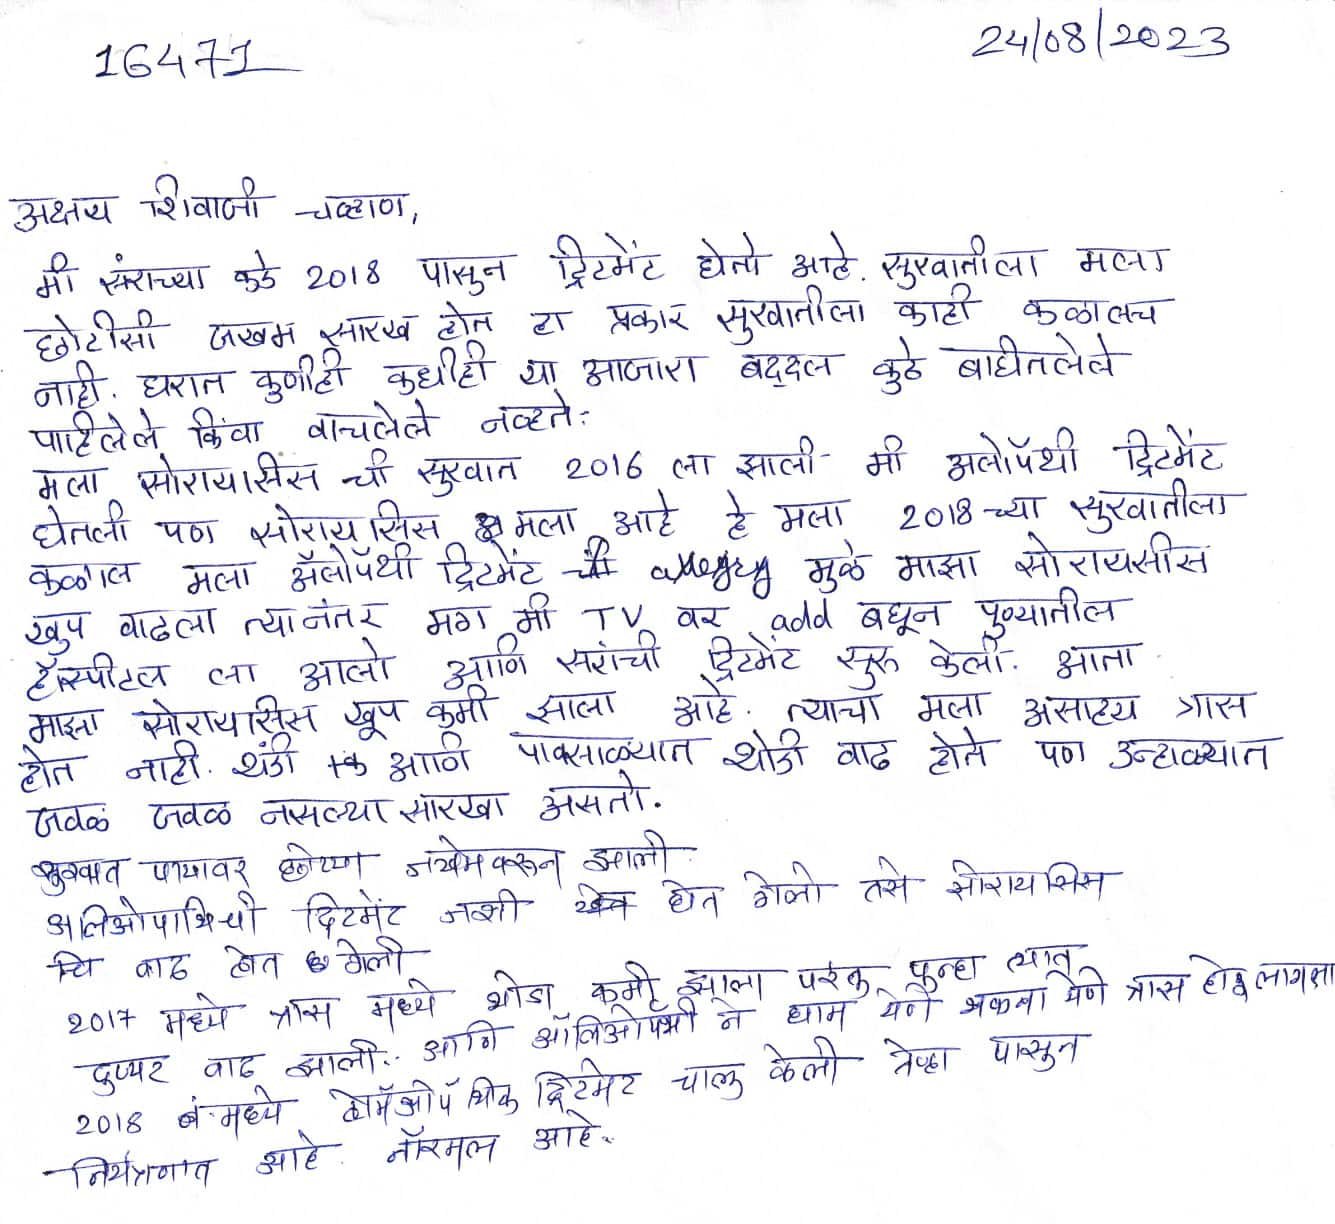 16471
24/08/2023
अक्षय शिवाजी चव्हाण,
मी सरांच्या कडे 2018 पासुन ट्रिटमेंट घेतो आहे. सुरवातीला मला
छोटीसी जखम सारख होत हा प्रकार सुरवातीला काही कळालच
नाही. घरात कुणीही कधीही या आजारा बद्दल कुठे बाघीतलेले
पाहिलेले किंवा वाचलेले नव्हते.
मला सोरायासीस ची सुरवात 2016 ला झाली मी अलोपॅथी ट्रिटमेंट
घेतली पण सोरायसिस मला आहे हे मला 2018 च्या सुरवातीला
कळाल मला ॲलोपॅथी ट्रिटमेंट ची मुळे माझा सोरायसीस
खुप वाढला त्यानंतर मग मी TV वर add बघून पुण्यातील
हॉस्पीटल ला आलो आणि सरांची ट्रिटमेंट सुरू केली. आता
माझा सोरायासिस खूप कमी झाला आहे. त्याचा मला असाहय त्रास
होत नाही. थंडी आणि पावसाळ्यात थोडी वाढ होते पण उन्हाळ्यात
जवळ जवळ नसल्या सारखा असतो.
सुरवात पायावर छोट्या जखमेवरून झाली
अलिओपाथिची ट्रिटमेंट जशी घेत गेलो तसे सोरायसिस
चि वाढ होत गेली
2017 मध्ये त्रास मध्ये थोडा कमी झाला परंतु पुन्हा त्यात
दुप्पट वाढ झाली. आणि ऑलिओपथी ने घाम येणे थकवा येणे त्रास होवु लागला
2018 मध्ये होमॅओपॅथिक ट्रिटमेट चालु केली तेव्हा पासुन
नियंत्रणात आहे. नॉरमल आहे.